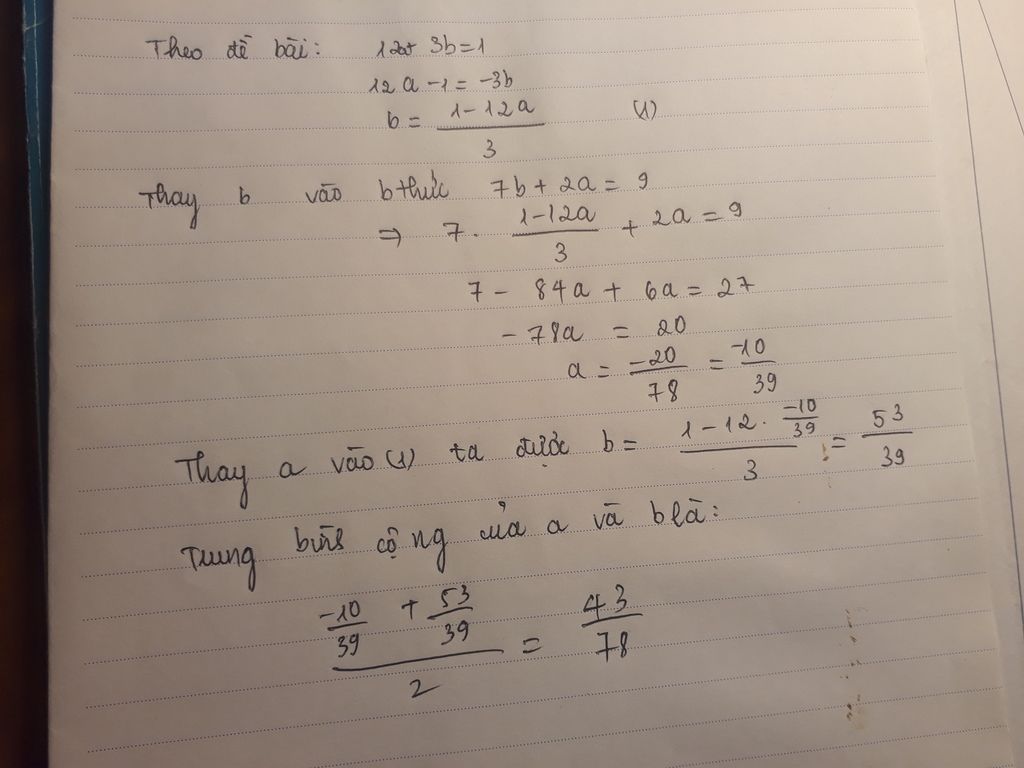 Theo đề bài: 12a+ 3b=1
12a -1 = -3b
b = \frac{1-12a}{3} (1)
Thay b vào bthức 7b + 2a = 9
⇒ 7. \frac{1-12a}{3} + 2a = 9
7 - 84a + 6a = 27
-78a = 20
a = \frac{-20}{78} = \frac{-10}{39}
Thay a vào (1) ta được b = \frac{1-12.\frac{-10}{39}}{3} = \frac{53}{39}
Trung bình cộng của a và b là:
\frac{\frac{-10}{39} + \frac{53}{39}}{2} = \frac{43}{78}